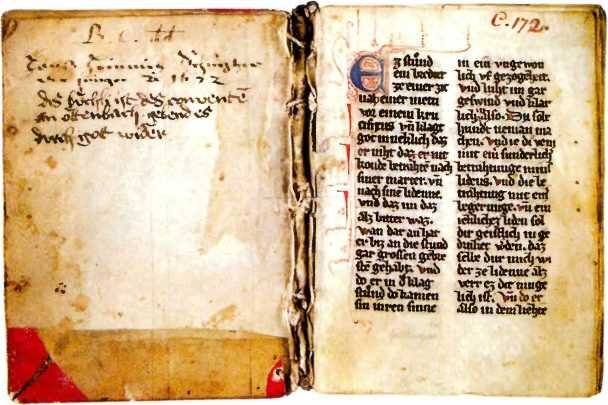 B. C.
1632
dis büchli ist des conventes
an ottenbach gebend es
durch got wider
C. 172.
Ez stůnd
ein bredier
ze einer zit
nah einer metti
vor einem kru
cifixus vñ klagt
got inneklich daz
er niht daz er nit
konde betrahte nach
siner marter. vñ
nach sine lidenne.
vnd daz im daz
alz bitter waz.
wan dar an hat
er biz an die stund
gar grossen gebre
sten gehabt. vnd
do er in d' klag
stůnd do kamen
sin inren sinne
in ein vngewon
lich vf gezogeheit.
vnd luht im gar
geswind vnd klar
lich also. Du solt
hundt venian ma
chen. vnd ie di veni
mit ein sunderlich
betrahtunge mins
lidens. vnd die be
trahtung mit ein
begerunge. vñ ein
ieklichez liden sol
dir geistlich in ge
druket w'den. daz
selbe dur mich wi
der ze lidenne alz
verr ez dir muge
lich ist. vñ do er
also in dem liehte